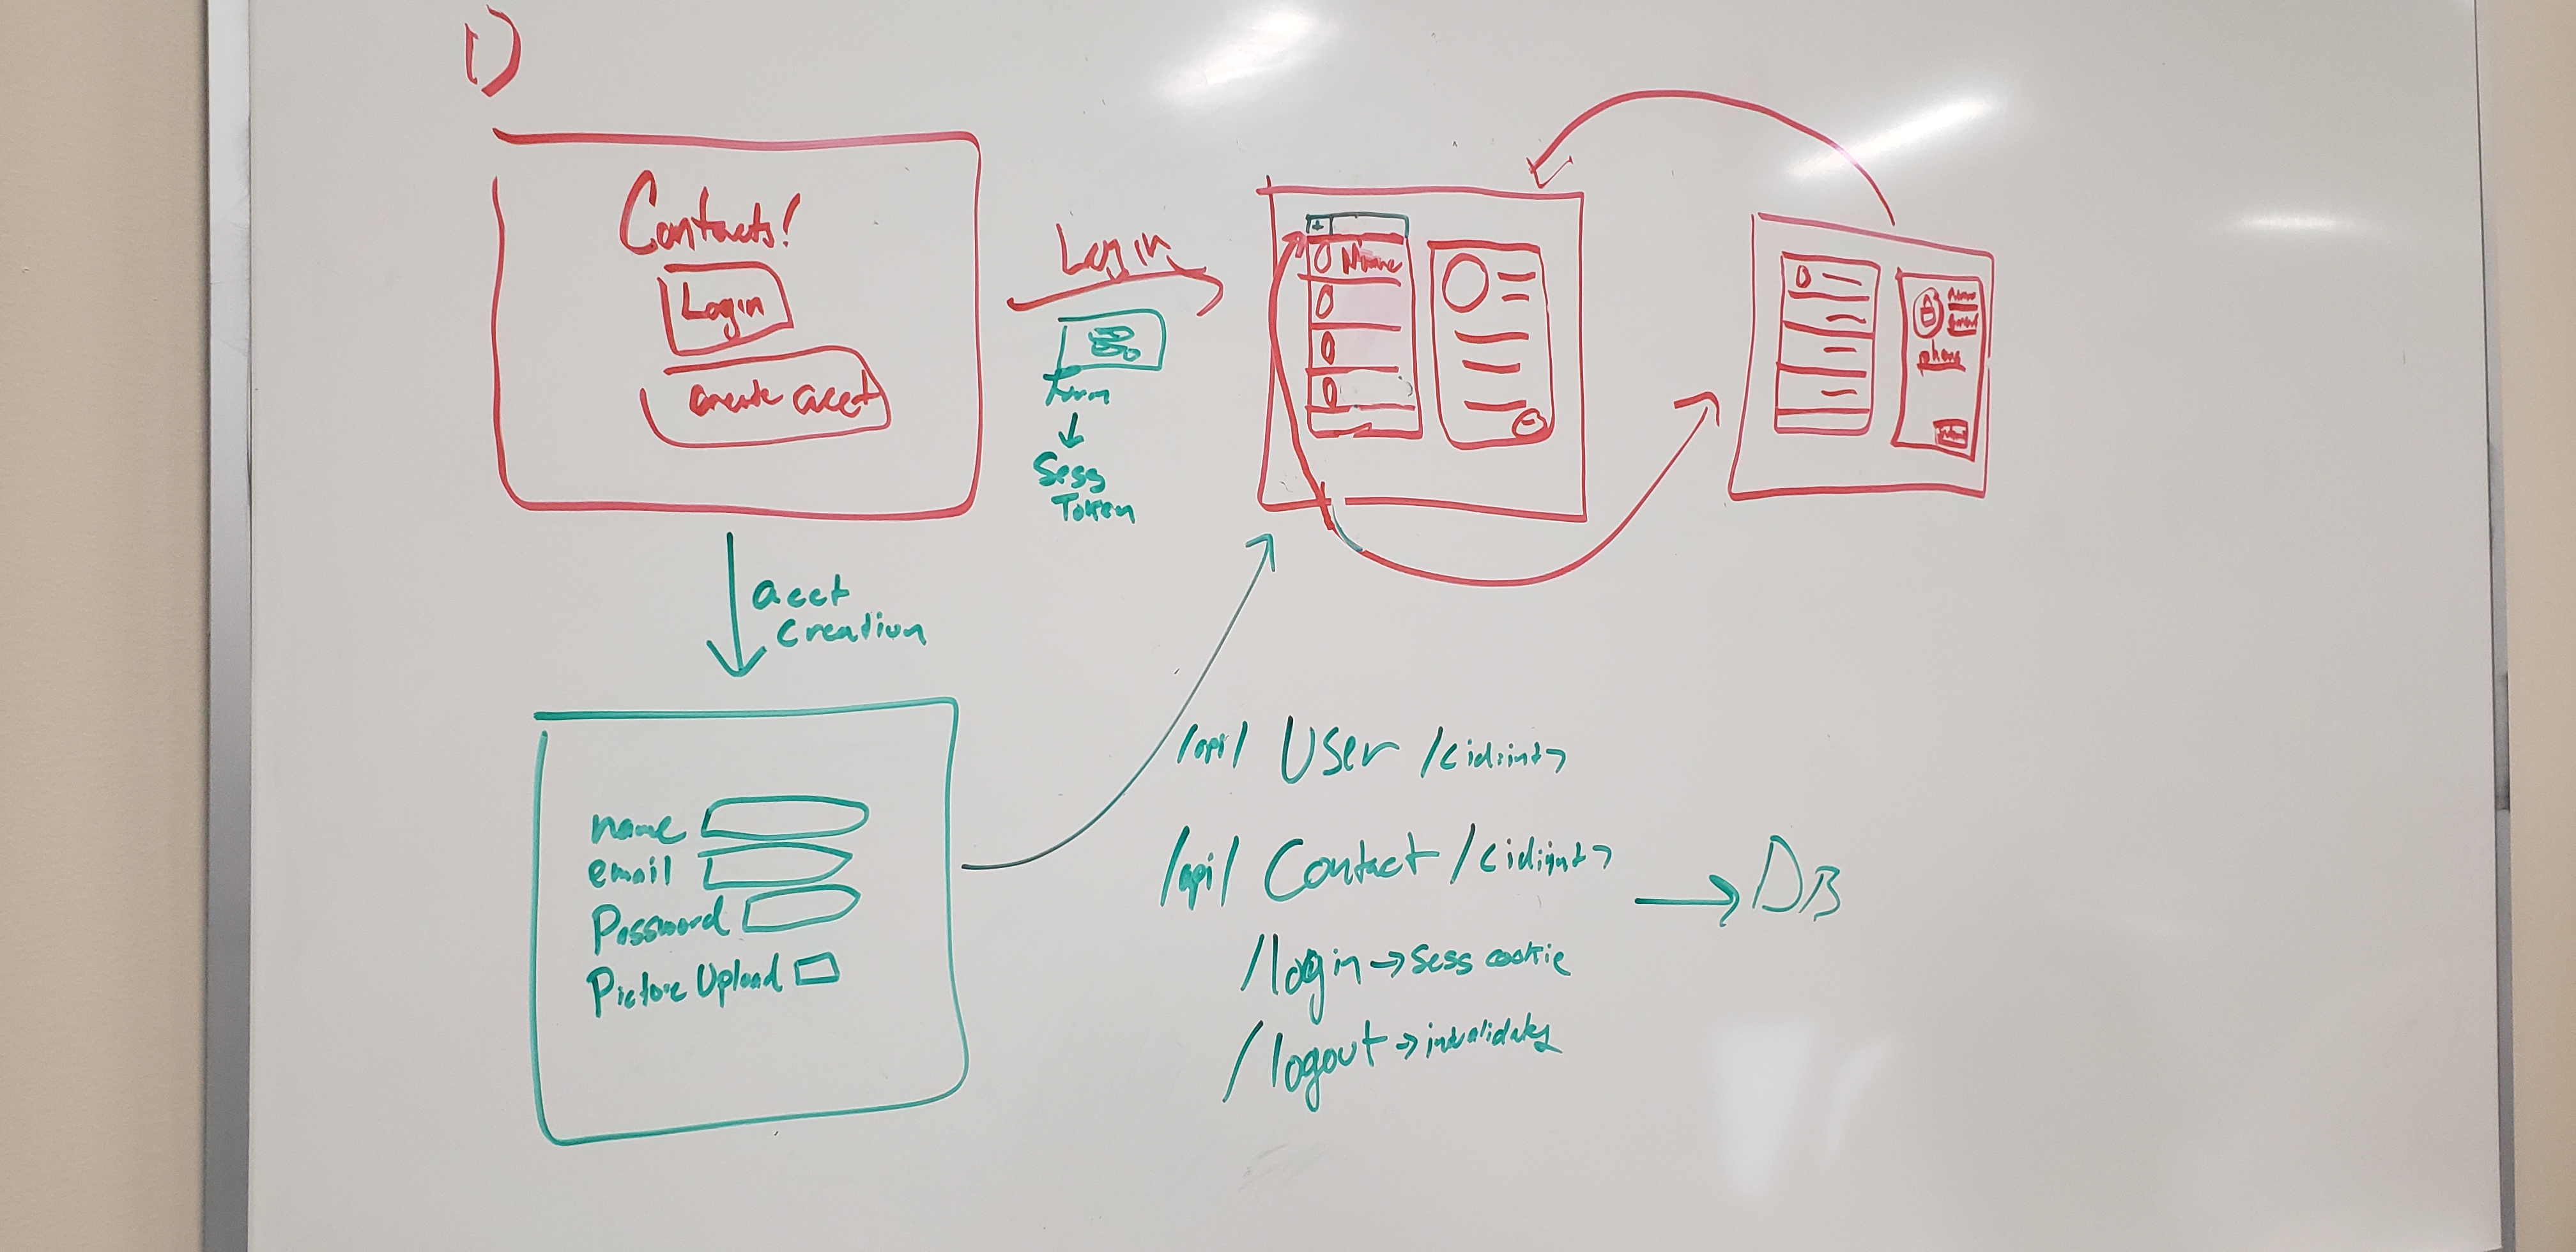 1)
Contacts!
Login
create acct
Login
Form
Sess
Token
+
Name
phone
acct
creation
name
email
Password
Picture Upload
/api/ User /<id:int>
/api/ Contact /<id:int>
DB
/login → sess cookie
/logout →